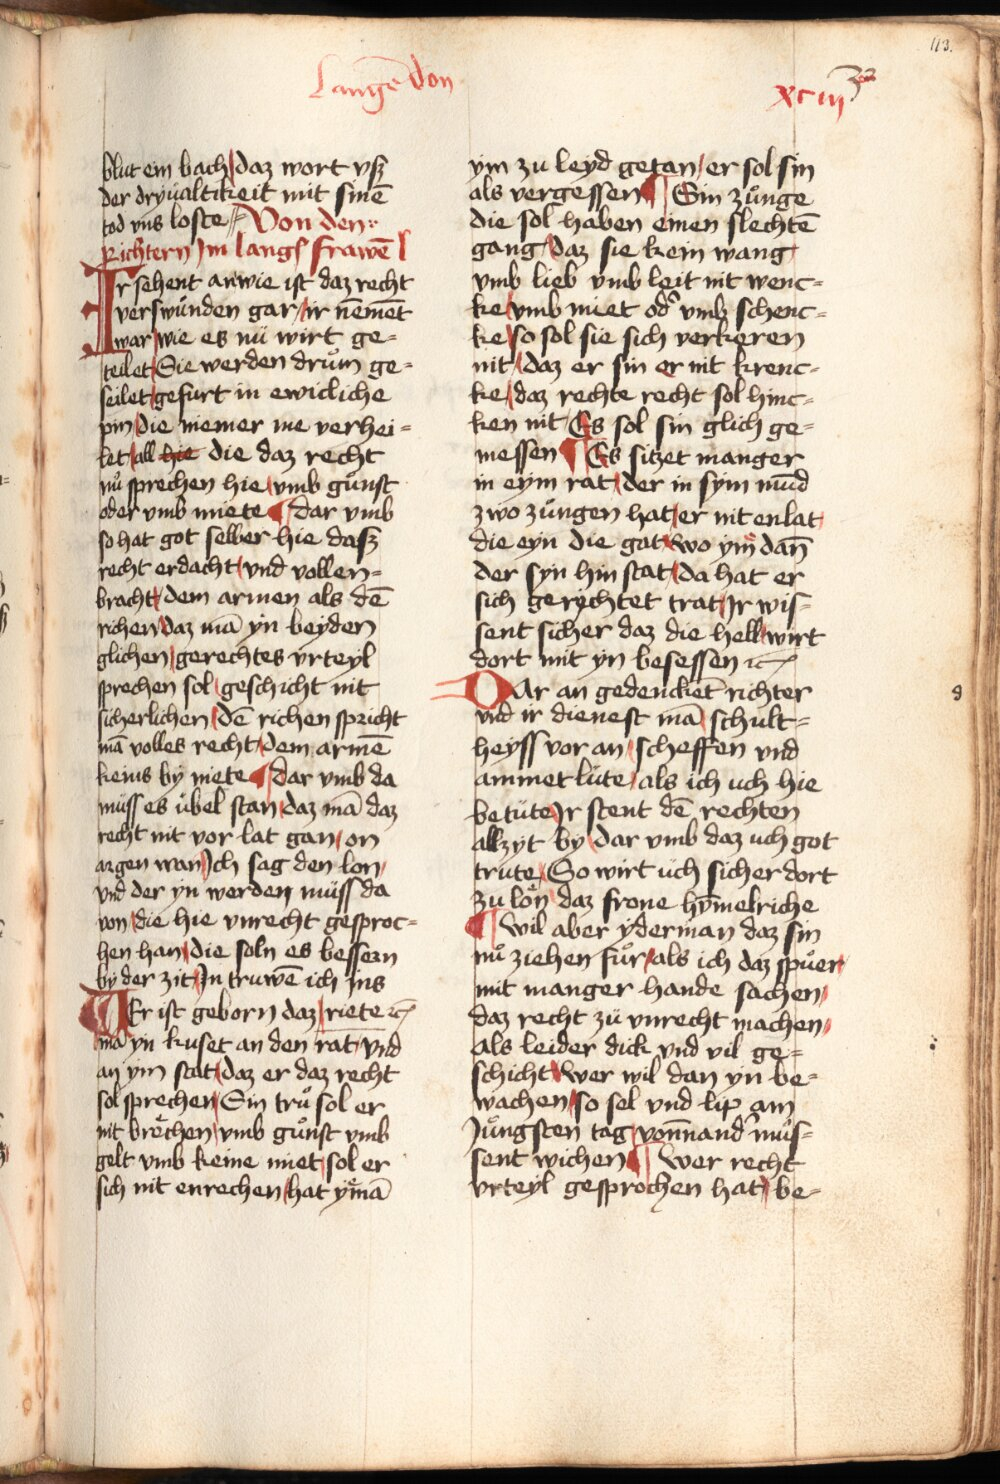 113.
Langē Don
xciiij 32
blut ein bach / daz wort vß
der dryualtikeit mit sinē
tod vns loste // Von den
Richtern Jm langē frawē l
Ir sehent an wie ist daz recht
verswůnden gar / ir nēmēt
war / wie es nů wirt ge=
teilet / Sie werden drům ge=
seilet / gefurt in ewicliche
pin / die niemer me verhei=
let / all hie die daz recht
nů sprechen hie / vmb gůnst
oder vmb miete ¶ dar vmb
so hat got selber hie daß
recht erdacht / vnd vollen=
bracht / dem armen als dē
richen / daz mā yn beyden
glichen / gerechtes vrteyl
sprechen sol / geschicht nit
sicherlichen / dē richen spricht
mā volles recht / dem armē
keins by miete ¶ dar vmb da
müss es übel stan / daz mā daz
recht nit vor lat gan / on
argen wan / Jch sag den lon /
vnd der yn werden müss da
von / die hie vnrecht gesproc=
hen han / die soln es bessern
by der zit / Jn truwē ich jns
WEr ist geborn daz / riete ꝛc
mā yn kuset an den rat / vnd
an ym stat / daz er daz recht
sol sprechen / Sin trů sol er
nit brechen / vmb gůnst vmb
gelt vmb keine miet / sol er
sich nit enrechen / hat ymā
ym zu leyd getan / er sol sin
als vergessen ¶ Sin zůnge
die sol haben einen slechtē
gang / daz sie kein wang /
vmb lieb vmb leit nit wenc=
ke / vmb miet od' vmb schenc=
ke / so sol sie sich verkeren
nit / daz er sin er nit krenc=
ke / daz rechte recht sol hinc=
ken nit / Es sol sin glich ge=
messen ¶ Es sitzet manger
in eym rat / der in sym mūd
zwo zůngen hat / er nit enlat /
die eyn die gat / wo ym dañ
der syn hin stat / da hat er
sich gerychtet trat / Jr wis=
sent sicher daz die hell / wirt
dort mit yn besessen ꝛc
DAr an gedenckēt richter
vnd ir dienest mā / schult=
heyss vor an / scheffen vnd
ammet lüte / als ich uch hie
betüte / Jr stent dē rechten
allzyt by / dar vmb daz uch got
trute / So wirt üch sicher dort
zu lōn / daz frone hȳmelriche
¶ Wil aber yderman daz sin
nů ziehen fůr / als ich daz spůer /
mit manger hande sachen /
daz recht zü vnrecht machen /
als leider dick vnd vil ge=
schicht / wer wil dan yn be=
wachen / so sel vnd lip am
Jůngsten tag / vonnand' můs=
sent wichen ¶ Wer recht
vrteyl gesprochen hat / be=